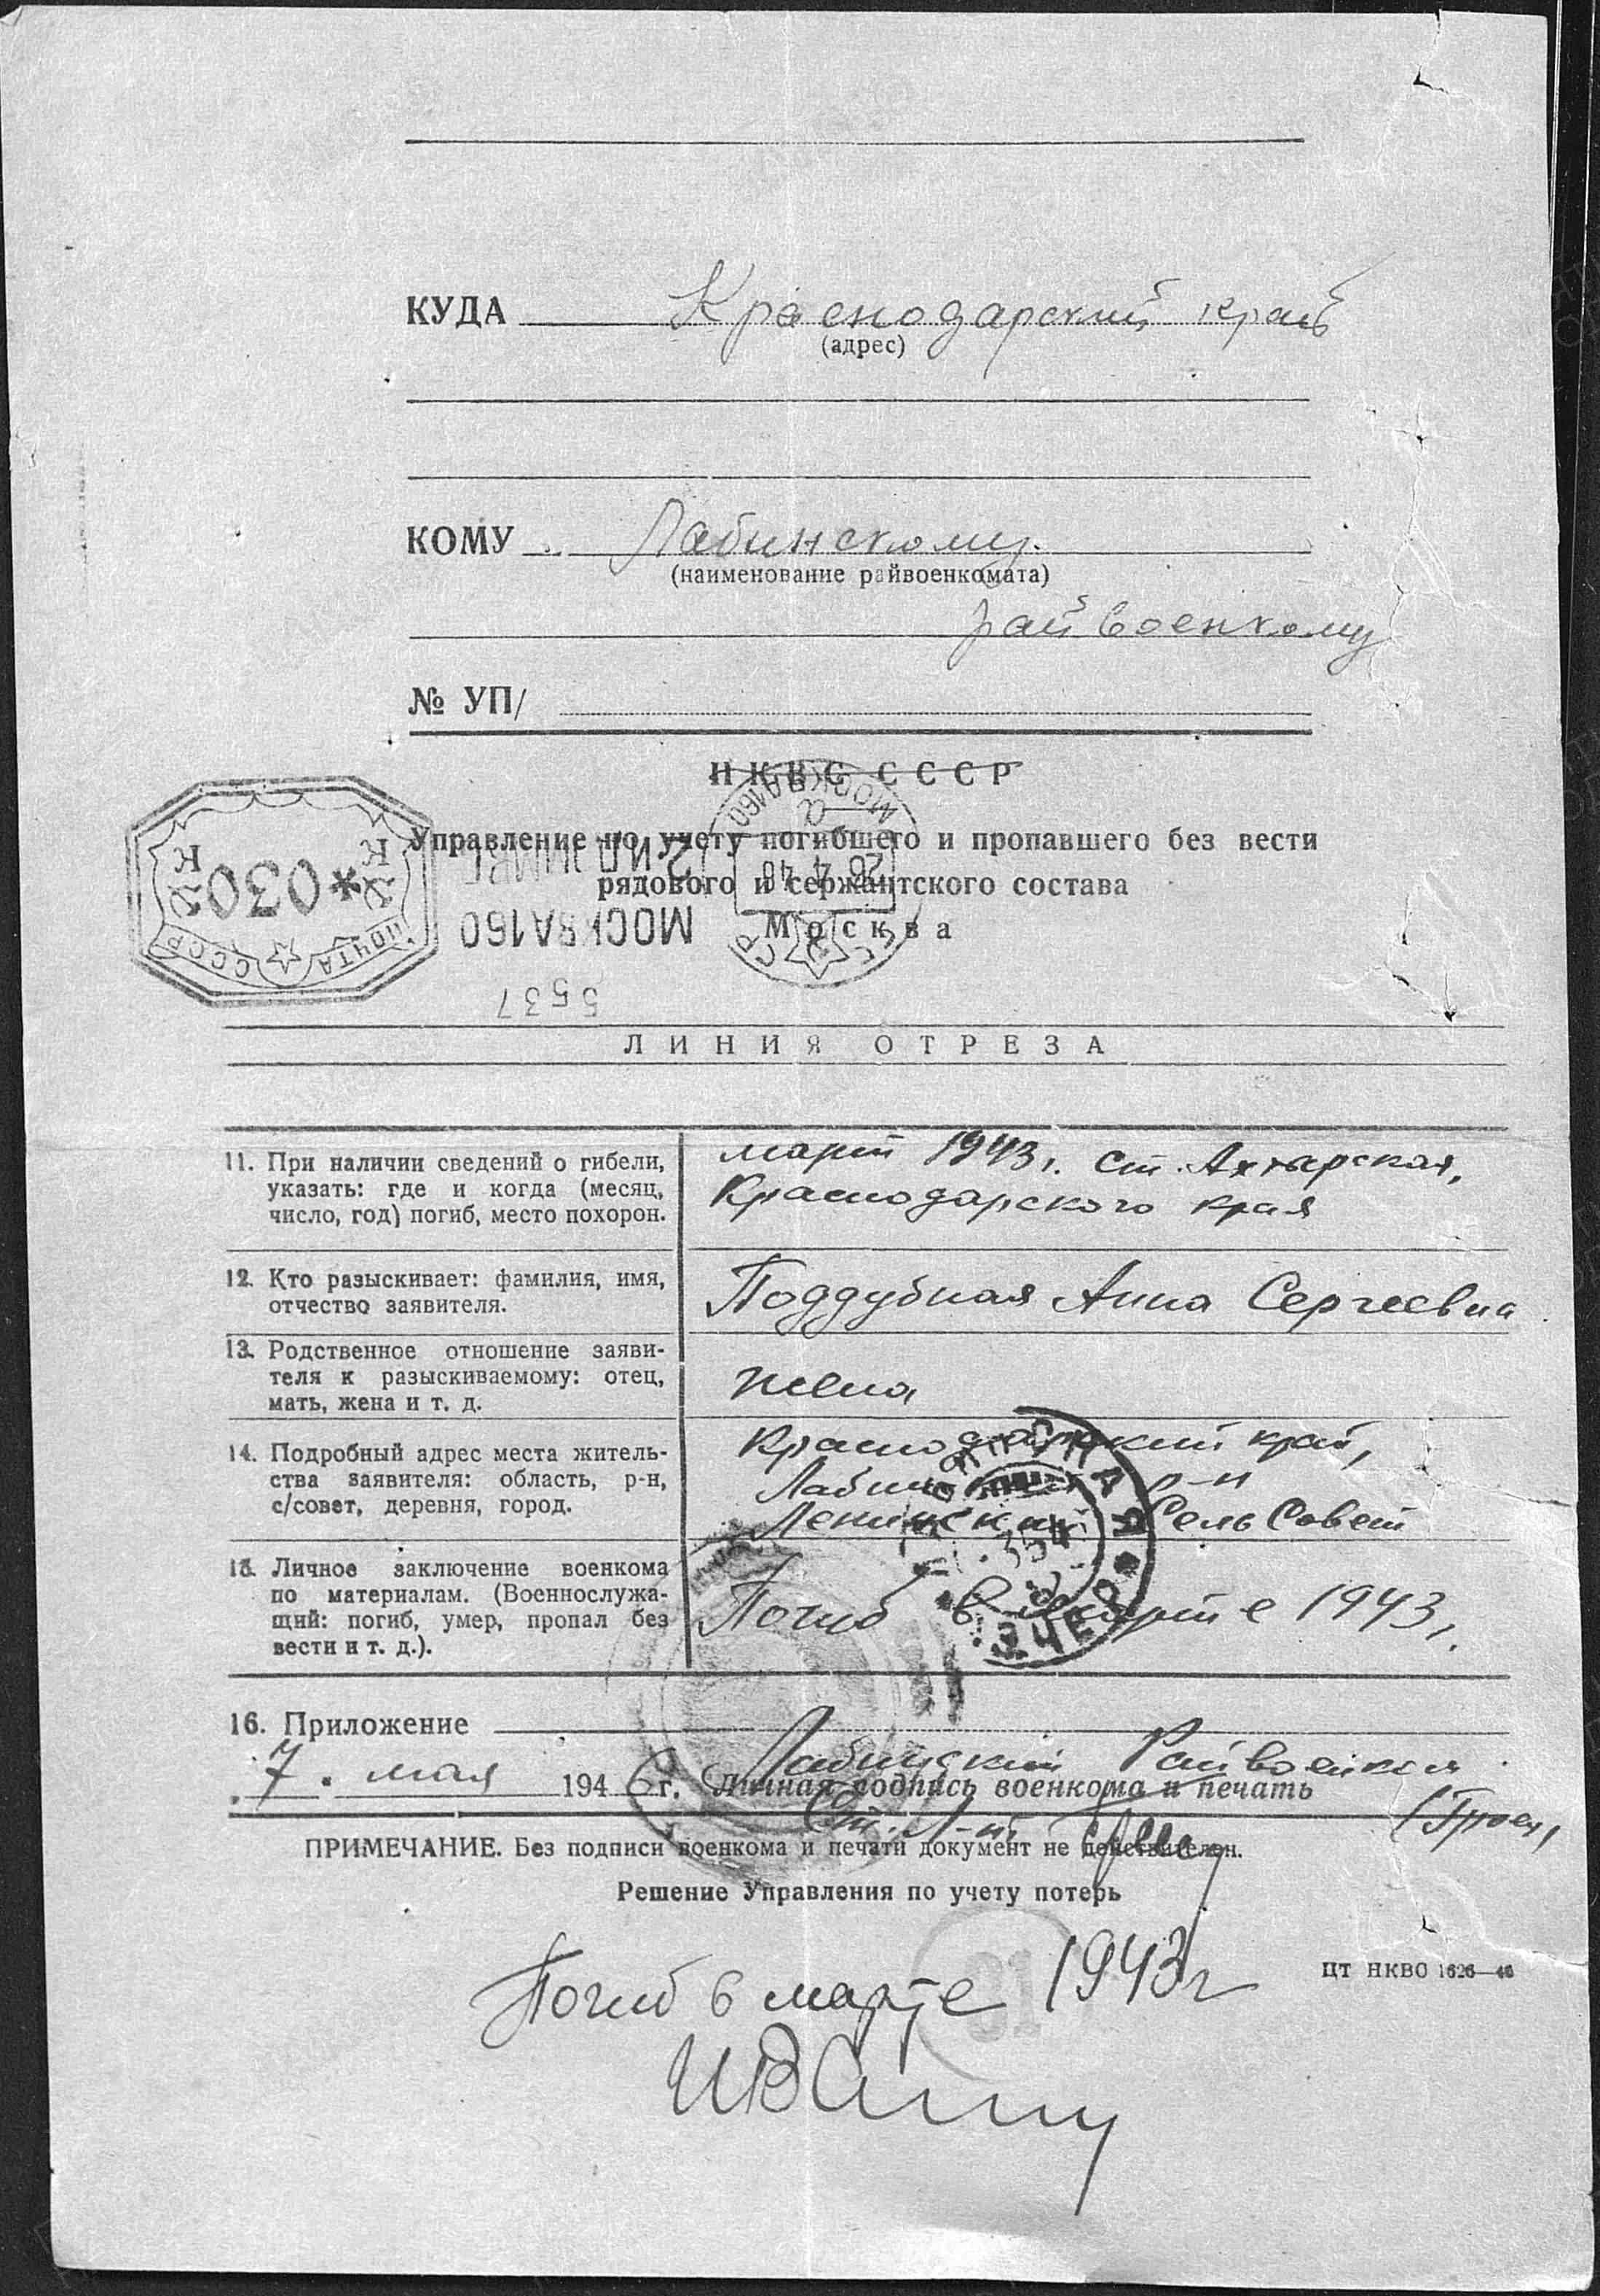 КУДА Краснодарский край
(адрес)
КОМУ Лабинскому
(наименование райвоенкомата)
райвоенкому
№ УП/
НКВС СССР
Управление по учету погибшего и пропавшего без вести
рядового и сержантского состава
Москва
ПОЧТА СССР
*030
К К
МОСКВА160
МОСКВА160
СССР
5537
ЛИНИЯ ОТРЕЗА
11. При наличии сведений о гибели,
указать: где и когда (месяц,
число, год) погиб, место похорон.
март 1943г. ст. Ахтарская,
Краснодарского края
12. Кто разыскивает: фамилия, имя,
отчество заявителя.
Поддубная Анна Сергеевна
13. Родственное отношение заяви-
теля к разыскиваемому: отец,
мать, жена и т. д.
жена
14. Подробный адрес места житель-
ства заявителя: область, р-н,
с/совет, деревня, город.
Краснодарский край,
Лабинский р-н
Ленинский Сель Совет
15. Личное заключение военкома
по материалам. (Военнослужа-
щий: погиб, умер, пропал без
вести и т. д.).
Погиб в марте 1943г.
16. Приложение
Лабинский Райвоенком
7. мая 1946 г. Личная подпись военкома и печать
Ст. Л-нт
ПРИМЕЧАНИЕ. Без подписи военкома и печати документ не действителен.
Решение Управления по учету потерь
Погиб в марте 1943г
ЦТ НКВО 1626—46